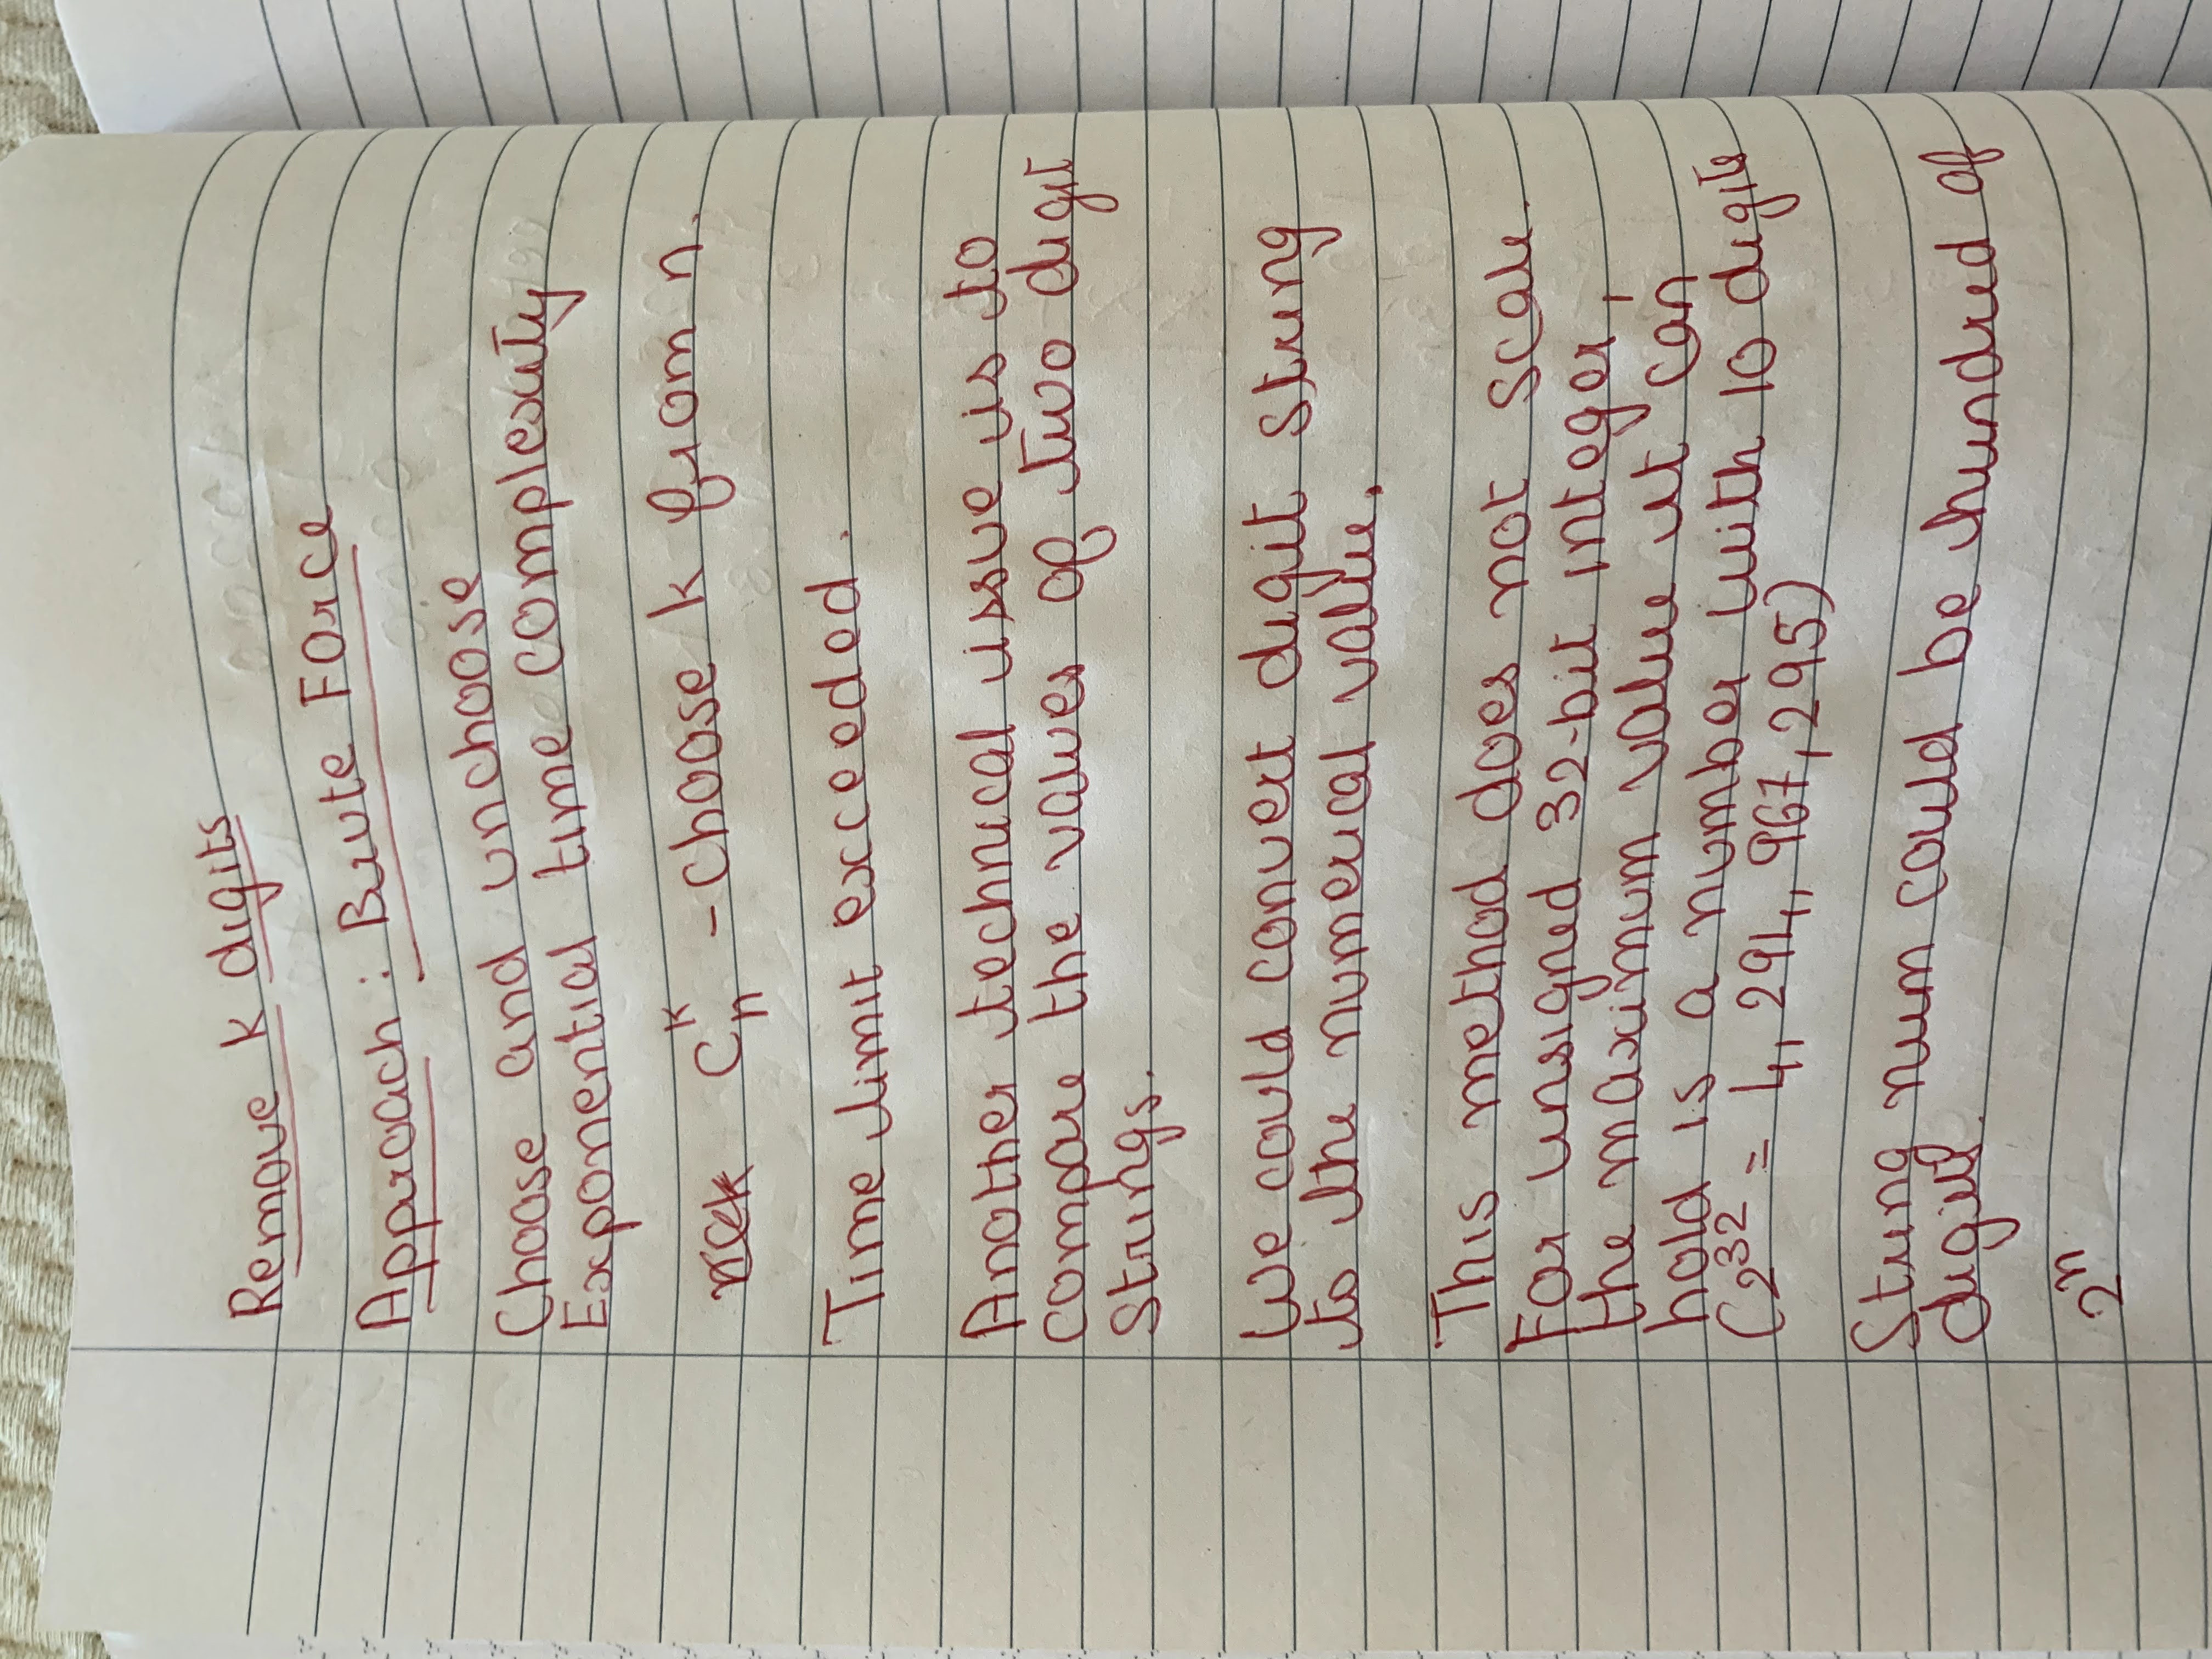 Remove k digits
Approach: Brute Force
Choose and unchoose
Exponential time complexity
C_n^k - choose k from n.
Time limit exceeded.
Another technical issue is to
compare the values of two digit
strings.
We could convert digit string
to the numerical value.
This method does not scale.
For unsigned 32-bit integer,
the maximum value it can
hold is a number with 10 digits
(2^32 = 4,294,967,295)
String num could be hundred of
digits.
2^n